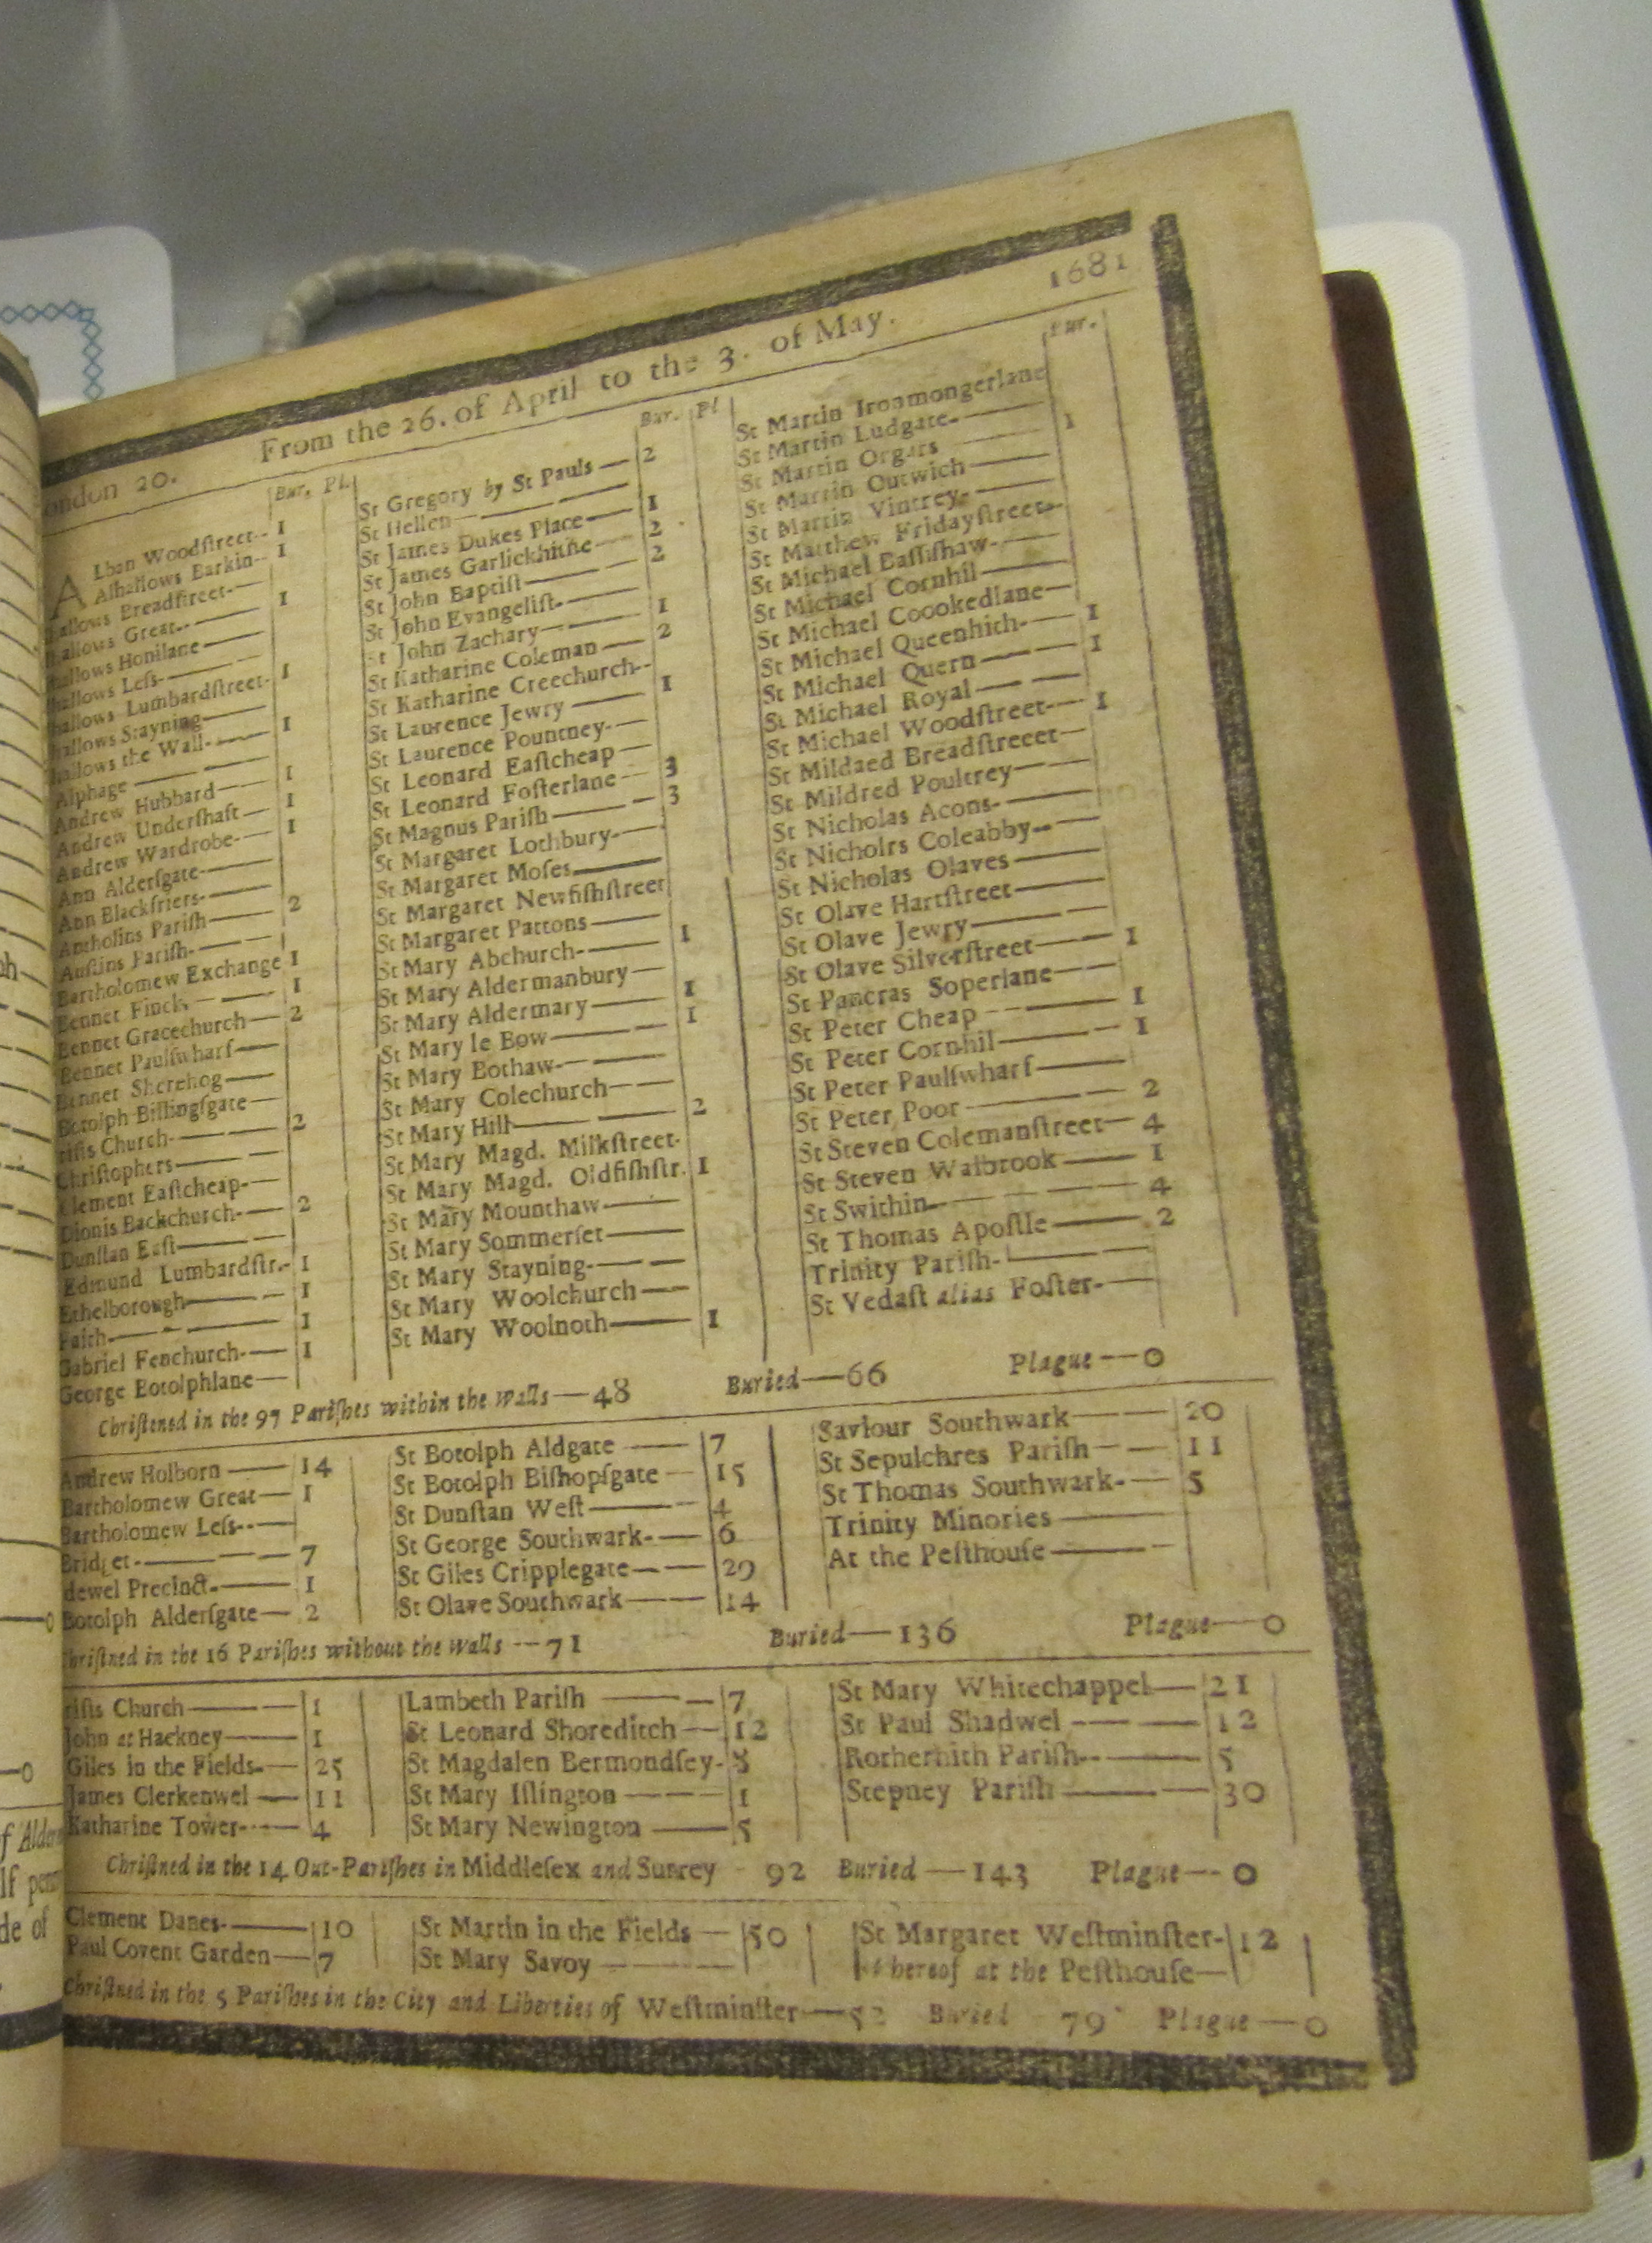 ondon 20. From the 26. of April to the 3. of May. 1681
Bur. Pl.
ALban Woodſtreet-- 1
Alhallows Barkin-- 1
allows Breadſtreet-
allows Great-- 1
allows Honilane
hallows Leſs-
hallows Lumbardſtreet- 1
allows Stayning
hallows the Wall- 1
Alphage
Andrew Hubbard 1
Andrew Underſhaft 1
Andrew Wardrobe- 1
Ann Alderſgate
Ann Blackfriers-
Antholins Pariſh 2
Auſtins Pariſh-
Bartholomew Exchange 1
Bennet Finck 1
Bennet Gracechurch 2
Bennet Paulſwharf
Bennet Sherehog
Botolph Billingſgate
riſts Church- 2
Chriſtophers
Clement Eaſtcheap-
Dionis Backchurch- 2
Dunſtan Eaſt
Edmund Lumbardſtr.- 1
Ethelborough 1
Faith 1
Gabriel Fenchurch- 1
George Botolphlane
Bur. Pl
St Gregory by St Pauls — 2
St Hellen
St James Dukes Place 1
St James Garlickhithe 2
St John Baptiſt 2
St John Evangeliſt-
St John Zachary 1
St Katharine Coleman 2
St Katharine Creechurch--
St Laurence Jewry 1
St Laurence Pountney-
St Leonard Eaſtcheap
St Leonard Foſterlane 3
St Magnus Pariſh 3
St Margaret Lothbury-
St Margaret Moſes
St Margaret Newfiſhſtreet
St Margaret Pattons
St Mary Abchurch- 1
St Mary Aldermanbury
St Mary Aldermary 1
St Mary le Bow 1
St Mary Bothaw-
St Mary Colechurch
St Mary Hill 2
St Mary Magd. Milkſtreet-
St Mary Magd. Oldfiſhſtr. 1
St Mary Mounthaw
St Mary Sommerſet
St Mary Stayning-
St Mary Woolchurch
St Mary Woolnoth 1
Bur.
St Martin Ironmongerlane
St Martin Ludgate- 1
St Martin Orgars
St Martin Outwich
St Martin Vintrey-
St Matthew Fridayſtreet-
St Michael Baſſiſhaw-
St Michael Cornhil
St Michael Coookedlane
St Michael Queenhith- 1
St Michael Quern 1
St Michael Royal
St Michael Woodſtreet 1
St Mildaed Breadſtreeet
St Mildred Poultrey
St Nicholas Acons-
St Nicholrs Coleabby--
St Nicholas Olaves
St Olave Hartſtreet
St Olave Jewry
St Olave Silverſtreet 1
St Pancras Soperlane
St Peter Cheap 1
St Peter Cornhil 1
St Peter Paulſwharf
St Peter Poor 2
St Steven Colemanſtreet 4
St Steven Walbrook 1
St Swithin 4
St Thomas Apoſtle 2
Trinity Pariſh-
St Vedaſt alias Foſter-
Chriſtened in the 97 Pariſhes within the walls—48 Buried—66 Plague—0
Andrew Holborn 14
Bartholomew Great 1
Bartholomew Leſs--
Bridget- 7
dewel Precinct- 1
Botolph Alderſgate 2
St Botolph Aldgate 7
St Botolph Biſhopſgate 15
St Dunſtan Weſt 4
St George Southwark- 6
St Giles Cripplegate 29
St Olave Southwark 14
Saviour Southwark 20
St Sepulchres Pariſh 11
St Thomas Southwark- 5
Trinity Minories
At the Peſthouſe
hriſtned in the 16 Pariſhes without the walls --71 Buried—136 Plague—0
riſts Church 1
John at Hackney 1
Giles in the Fields- 25
James Clerkenwel 11
Katharine Tower- 4
Lambeth Pariſh 7
St Leonard Shoreditch 12
St Magdalen Bermondſey- 8
St Mary Iſlington 1
St Mary Newington 5
St Mary Whitechappel 21
St Paul Shadwel 12
Rotherhith Pariſh-- 5
Stepney Pariſh 30
Chriſtned in the 14 Out-Pariſhes in Middleſex and Surrey 92 Buried—143 Plague—0
Clement Danes- 10
Paul Covent Garden 7
St Martin in the Fields 50
St Mary Savoy
St Margaret Weſtminſter- 12
hereof at the Peſthouſe
Chriſtned in the 5 Pariſhes in the City and Liberties of Weſtminſter—52 Buried 79 Plague—0